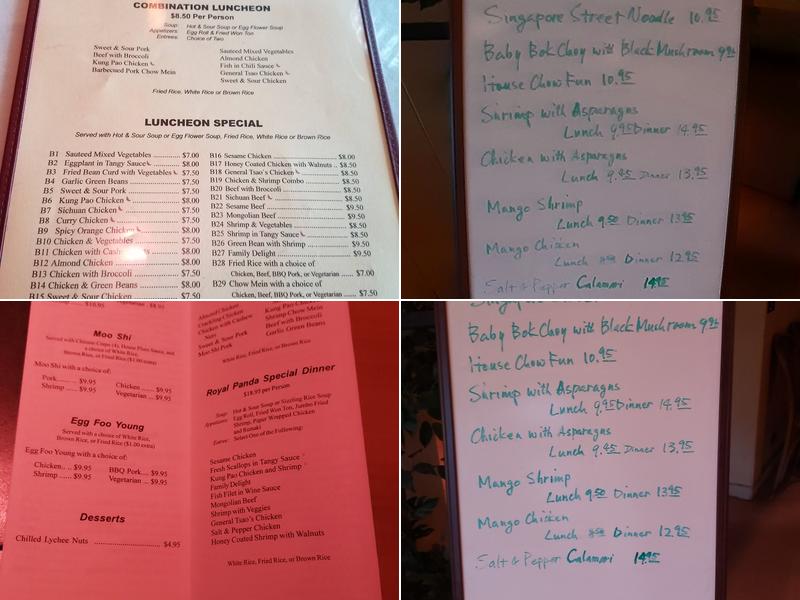 COMBINATION LUNCHEON
$8.50 Per Person
Soup: Hot & Sour Soup or Egg Flower Soup
Appetizers: Egg Roll & Fried Won Ton
Entrees: Choice of Two
Sweet & Sour Pork
Beef with Broccoli
Kung Pao Chicken
Barbecued Pork Chow Mein
Sauteed Mixed Vegetables
Almond Chicken
Fish in Chili Sauce
General Tsao Chicken
Sweet & Sour Chicken
Fried Rice, White Rice or Brown Rice
LUNCHEON SPECIAL
Served with Hot & Sour Soup or Egg Flower Soup, Fried Rice, White Rice or Brown Rice
B1 Sauteed Mixed Vegetables ........... $7.00
B2 Eggplant in Tangy Sauce ........... $8.00
B3 Fried Bean Curd with Vegetables .. $7.50
B4 Garlic Green Beans ........... $7.50
B5 Sweet & Sour Pork ........... $7.50
B6 Kung Pao Chicken ........... $8.00
B7 Sichuan Chicken ........... $7.50
B8 Curry Chicken ........... $7.50
B9 Spicy Orange Chicken ........... $8.00
B10 Chicken & Vegetables ........... $7.50
B11 Chicken with Cashew Nuts $8.00
B12 Almond Chicken ........... $8.00
B13 Chicken with Broccoli ........... $7.50
B14 Chicken & Green Beans ........... $8.00
B15 Sweet & Sour Chicken
B16 Sesame Chicken ........... $8.00
B17 Honey Coated Chicken with Walnuts .. $8.50
B18 General Tsao's Chicken ........... $8.50
B19 Chicken & Shrimp Combo ........... $8.50
B20 Beef with Broccoli ........... $8.50
B21 Sichuan Beef ........... $8.50
B22 Sesame Beef ........... $9.50
B23 Mongolian Beef ........... $9.50
B24 Shrimp & Vegetables ........... $8.50
B25 Shrimp in Tangy Sauce ........... $8.50
B26 Green Bean with Shrimp ........... $9.50
B27 Family Delight ........... $9.50
B28 Fried Rice with a choice of
Chicken, Beef, BBQ Pork, or Vegetarian ...... $7.00
B29 Chow Mein with a choice of
Chicken, Beef, BBQ Pork, or Vegetarian ...... $7.50
Singapore Street Noodle 10.95
Baby Bok Choy with Black Mushroom 9.95
House Chow Fun 10.95
Shrimp with Asparagus
Lunch 9.95 Dinner 14.95
Chicken with Asparagus
Lunch 9.95 Dinner 13.95
Mango Shrimp
Lunch 9.50 Dinner 13.95
Mango Chicken
Lunch Dinner 12.95
Salt & Pepper Calamari 14.95
Moo Shi
Served with Chinese Crepe (4), House Plum Sauce, and
a choice of White Rice,
Brown Rice, or Fried Rice ($1.00 extra)
Moo Shi with a choice of:
Pork ........ $9.95
Shrimp ..... $9.95
Chicken ...... $9.95
Vegetarian ... $9.95
Egg Foo Young
Served with a choice of White Rice,
Brown Rice, or Fried Rice ($1.00 extra)
Egg Foo Young with a choice of:
Chicken.... $9.95
Shrimp ...... $9.95
BBQ Pork.... $9.95
Vegetarian .. $9.95
Desserts
Chilled Lychee Nuts ........... $4.95
Almond Chicken
Crackling Chicken
Chicken with Cashew
Nuts
Sweet & Sour Pork
Moo Shi Pork
Kung Pao Chicken
Shrimp Chow Mein
Beef with Broccoli
Garlic Green Beans
White Rice, Fried Rice, or Brown Rice
Royal Panda Special Dinner
$18.95 per Person
Soup: Hot & Sour Soup or Sizzling Rice Soup
Appetizers: Egg Roll, Fried Won Ton, Jumbo Fried
Shrimp, Paper Wrapped Chicken
and Rumaki
Entree: Select One of the Following:
Sesame Chicken
Fresh Scallops in Tangy Sauce
Kung Pao Chicken and Shrimp
Family Delight
Fish Filet in Wine Sauce
Mongolian Beef
Shrimp with Veggies
General Tsao's Chicken
Salt & Pepper Chicken
Honey Coated Shrimp with Walnuts
White Rice, Fried Rice, or Brown Rice
Baby Bok Choy with Black Mushroom 9.95
House Chow Fun 10.95
Shrimp with Asparagus
Lunch 9.95 Dinner 14.95
Chicken with Asparagus
Lunch 9.95 Dinner 13.95
Mango Shrimp
Lunch 9.50 Dinner 13.95
Mango Chicken
Lunch Dinner 12.95
Salt & Pepper Calamari 14.95